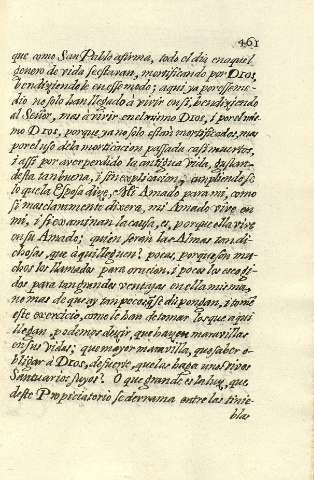 461
que como San Pablo afirma, todo el dia en aquel
genero de vida se estaran, mortificando por Dios,
bendiziendole en esse modo; aqui ya por esse me-
dio no solo han llegado à vivir en si, bendiziendo
al Señor, mas à vivir en el mismo Dios, i por el mis-
mo Dios, porque ya no solo estan mortificados, mas
por el uso de la mortificacion passada casi muertos
i assi por aver perdido la antigua vida, gustan
desta tan buena, i sin explicacion, cumpliendose
lo que la Esposa dize, Mi Amado para mi, como
si mas claramente dixera, mi Amado vive en
mi, i si examinan la causa, es, porque ella vive
en su Amado; quien seran las Almas tan di-
chosas, que aqui lleguen? pocas, porque son mu-
chos los llamados para oracion, i pocos los escogi-
dos para tan grandes ventajas en ella misma,
no mas de que ay tan pocos que se dispongan, i tomen
este exercicio, como le han de tomar los que aqui
llegan, podemos dezir, que hazen maravillas
en sus vidas; que mayor maravilla, que saber o-
bligar à Dios, de suerte, que las haga unos vivos
Santuarios suyos? O que grande es la luz, que
deste Propiciatorio se derrama entre las tinie-
blas